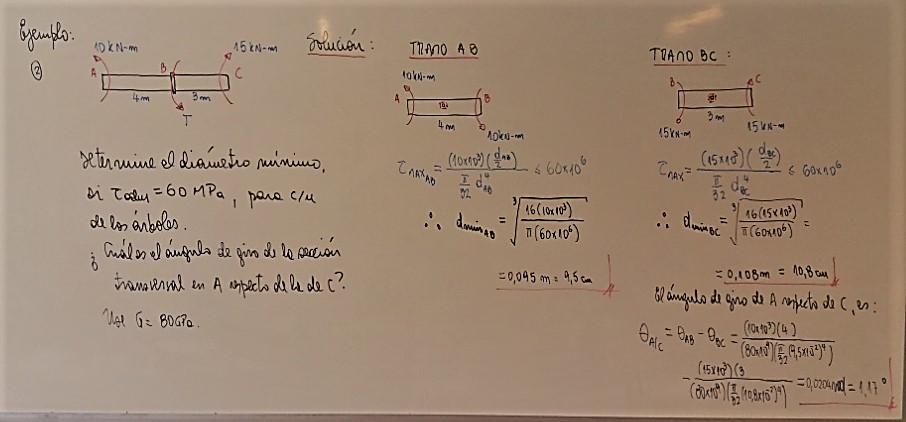 Ejemplo:
②
10 kN-m
15 kN-m
A
B
C
4m
3m
T
Determine el diámetro mínimo,
si τadm = 60 MPa, para c/u
de los árboles.
¿Cuál es el ángulo de giro de la sección
transversal en A respecto de la de C?
Use G = 80GPa.
Solución:
TRAMO AB
10kN-m
A
B
4m
10kN-m
τMAX AB = (10x10³)(dAB/2) / (π/32 dAB⁴) ≤ 60x10⁶
∴ dminAB = ³√(16(10x10³) / π(60x10⁶))
= 0,095 m = 9,5 cm
TRAMO BC:
B
C
3m
15kN-m
15kN-m
τMAX = (15x10³)(dBC/2) / (π/32 dBC⁴) ≤ 60x10⁶
∴ dminBC = ³√(16(15x10³) / π(60x10⁶)) =
= 0,108m = 10,8cm
El ángulo de giro de A respecto de C, es:
θA/C = θAB - θBC = (10x10³)(4) / (80x10⁹)(π/32 (9,5x10⁻²)⁴)
- (15x10³)(3 / (80x10⁹)(π/32 (10,8x10⁻²)⁴) = 0,0204rad = 1,17°